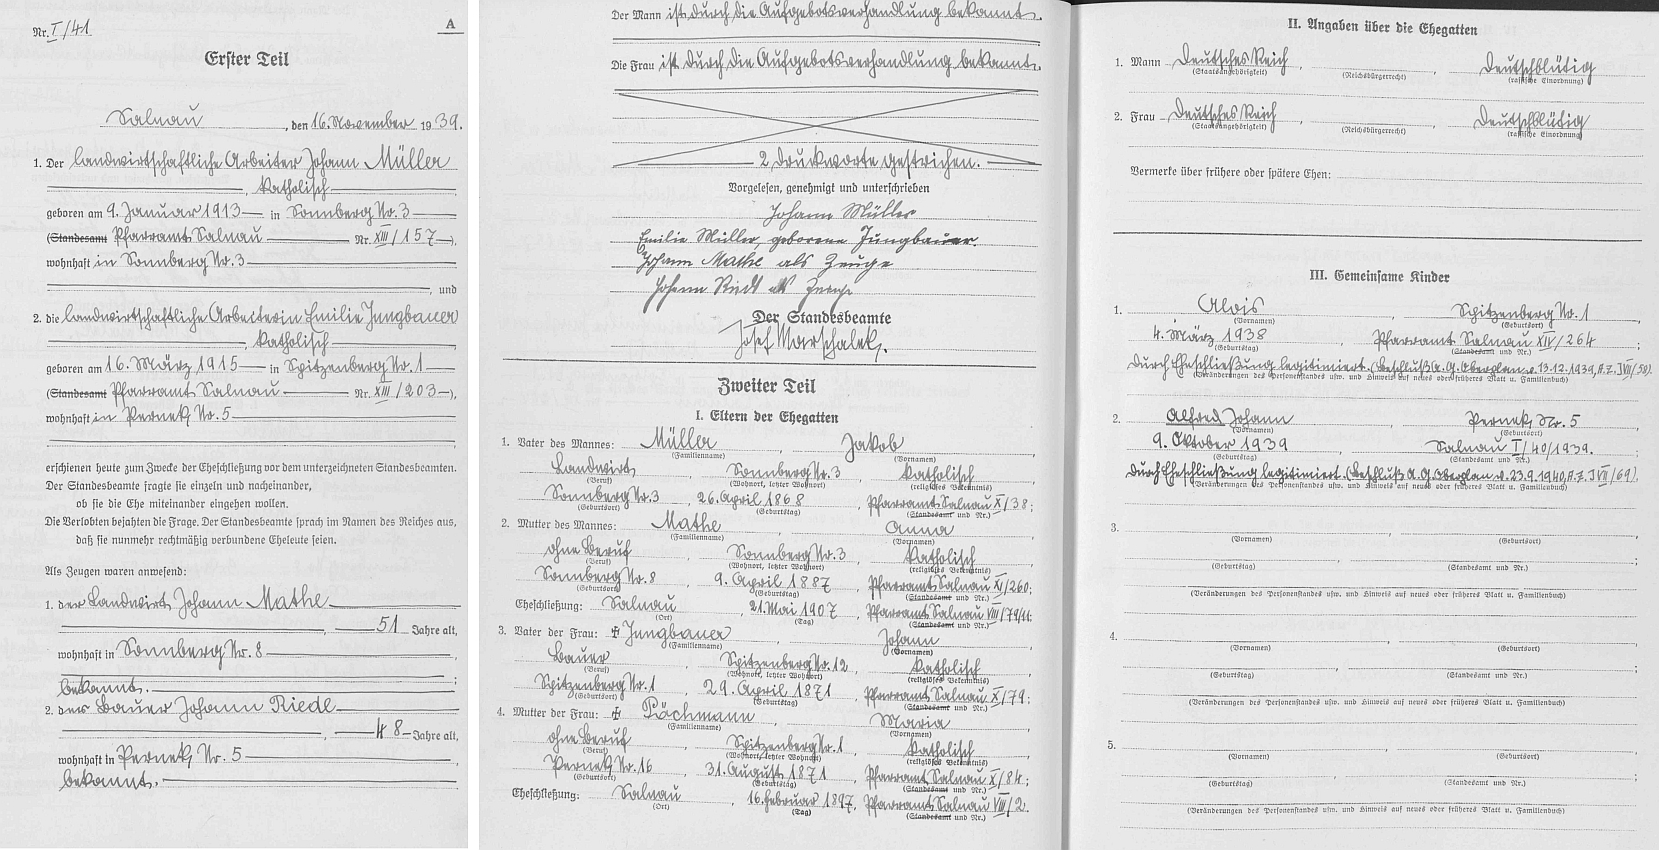 Nr. I/41
A
Erster Teil
Salnau, den 16. November 1939.
1. Der landwirtschaftliche Arbeiter Johann Müller
, katholisch
geboren am 9. Januar 1913 in Sonnberg Nr. 3
(Standesamt Pfarramt Salnau Nr. XIII/157),
wohnhaft in Sonnberg Nr. 3
, und
2. die landwirtschaftliche Arbeiterin Emilie Jungbauer
, katholisch
geboren am 16. März 1915 in Spitzenberg Nr. 1
(Standesamt Pfarramt Salnau Nr. XIII/203),
wohnhaft in Pernek Nr. 5
erschienen heute zum Zwecke der Eheschließung vor dem unterzeichneten Standesbeamten.
Der Standesbeamte fragte sie einzeln und nacheinander,
ob sie die Ehe miteinander eingehen wollen.
Die Verlobten bejahten die Frage. Der Standesbeamte sprach im Namen des Reiches aus,
daß sie nunmehr rechtmäßig verbundene Eheleute seien.
Als Zeugen waren anwesend:
1. der Landwirt Johann Mathe
, 51 Jahre alt,
wohnhaft in Sonnberg Nr. 8
;
bekannt.
2. der Bauer Johann Riedl
, 48 Jahre alt,
wohnhaft in Pernek Nr. 5
bekannt.
Der Mann ist durch die Aufgebotsverhandlung bekannt.
Die Frau ist durch die Aufgebotsverhandlung bekannt.
2 Druckworte gestrichen.
Vorgelesen, genehmigt und unterschrieben
Johann Müller
Emilie Müller, geborene Jungbauer
Johann Mathe als Zeuge
Johann Riedl als Zeuge
Der Standesbeamte
Josef Marschalek.
Zweiter Teil
I. Eltern der Ehegatten
1. Vater des Mannes: Müller, Jakob
(Familienname) (Vornamen)
Landwirt, Sonnberg Nr. 3, katholisch
(Beruf) (Wohnort, letzter Wohnort) (religiöses Bekenntnis)
Sonnberg Nr. 3, 26. April 1868, Pfarramt Salnau X/38;
(Geburtsort) (Geburtstag) (Standesamt und Nr.)
2. Mutter des Mannes: Mathe, Anna
(Familienname) (Vornamen)
ohne Beruf, Sonnberg Nr. 3, katholisch
(Beruf) (Wohnort, letzter Wohnort) (religiöses Bekenntnis)
Sonnberg Nr. 8, 9. April 1887, Pfarramt Salnau XI/260;
(Geburtsort) (Geburtstag) (Standesamt und Nr.)
Eheschließung: Salnau, 21. Mai 1907, Pfarramt Salnau VIII/79/
(Ort) (Tag) (Standesamt und Nr.)
3. Vater der Frau: ✠ Jungbauer, Johann
(Familienname) (Vornamen)
Bauer, Spitzenberg Nr. 12, katholisch
(Beruf) (Wohnort, letzter Wohnort) (religiöses Bekenntnis)
Spitzenberg Nr. 1, 29. April 1871, Pfarramt Salnau X/79;
(Geburtsort) (Geburtstag) (Standesamt und Nr.)
4. Mutter der Frau: ✠ Pöchmann, Maria
(Familienname) (Vornamen)
ohne Beruf, Spitzenberg Nr. 1, katholisch
(Beruf) (Wohnort, letzter Wohnort) (religiöses Bekenntnis)
Pernek Nr. 16, 31. August 1871, Pfarramt Salnau X/84;
(Geburtsort) (Geburtstag) (Standesamt und Nr.)
Eheschließung: Salnau, 16. Februar 1897, Pfarramt Salnau VIII/2
(Ort) (Tag) (Standesamt und Nr.)
II. Angaben über die Ehegatten
1. Mann Deutsches Reich, , Deutschblütig
(Staatsangehörigkeit) (Reichsbürgerrecht) (rassische Einordnung)
2. Frau Deutsches Reich, , Deutschblütig
(Staatsangehörigkeit) (Reichsbürgerrecht) (rassische Einordnung)
Vermerke über frühere oder spätere Ehen:
III. Gemeinsame Kinder
1. Alois, Spitzenberg Nr. 1
(Vornamen) (Geburtsort)
4. März 1938, Pfarramt Salnau XIV/264;
(Geburtstag) (Standesamt und Nr.)
durch Eheschließung legitimiert. (Beschluß A.G. Oberplan v. 13.12.1939, A.Z. I VII/58).
(Veränderungen des Personenstandes usw. und Hinweis auf neues oder früheres Blatt u. Familienbuch)
2. Alfred Johann, Pernek, Nr. 5
(Vornamen) (Geburtsort)
9. Oktober 1939, Salnau I/40/1939.
(Geburtstag) (Standesamt und Nr.)
durch Eheschließung legitimiert. (Beschluß A.G. Oberplan v. 23.9.1940, A.Z. I VII/69).
(Veränderungen des Personenstandes usw. und Hinweis auf neues oder früheres Blatt u. Familienbuch)
3.
(Vornamen) (Geburtsort)
(Geburtstag) (Standesamt und Nr.)
(Veränderungen des Personenstandes usw. und Hinweis auf neues oder früheres Blatt u. Familienbuch)
4.
(Vornamen) (Geburtsort)
(Geburtstag) (Standesamt und Nr.)
(Veränderungen des Personenstandes usw. und Hinweis auf neues oder früheres Blatt u. Familienbuch)
5.
(Vornamen) (Geburtsort)
(Geburtstag) (Standesamt und Nr.)
(Veränderungen des Personenstandes usw. und Hinweis auf neues oder früheres Blatt u. Familienbuch)